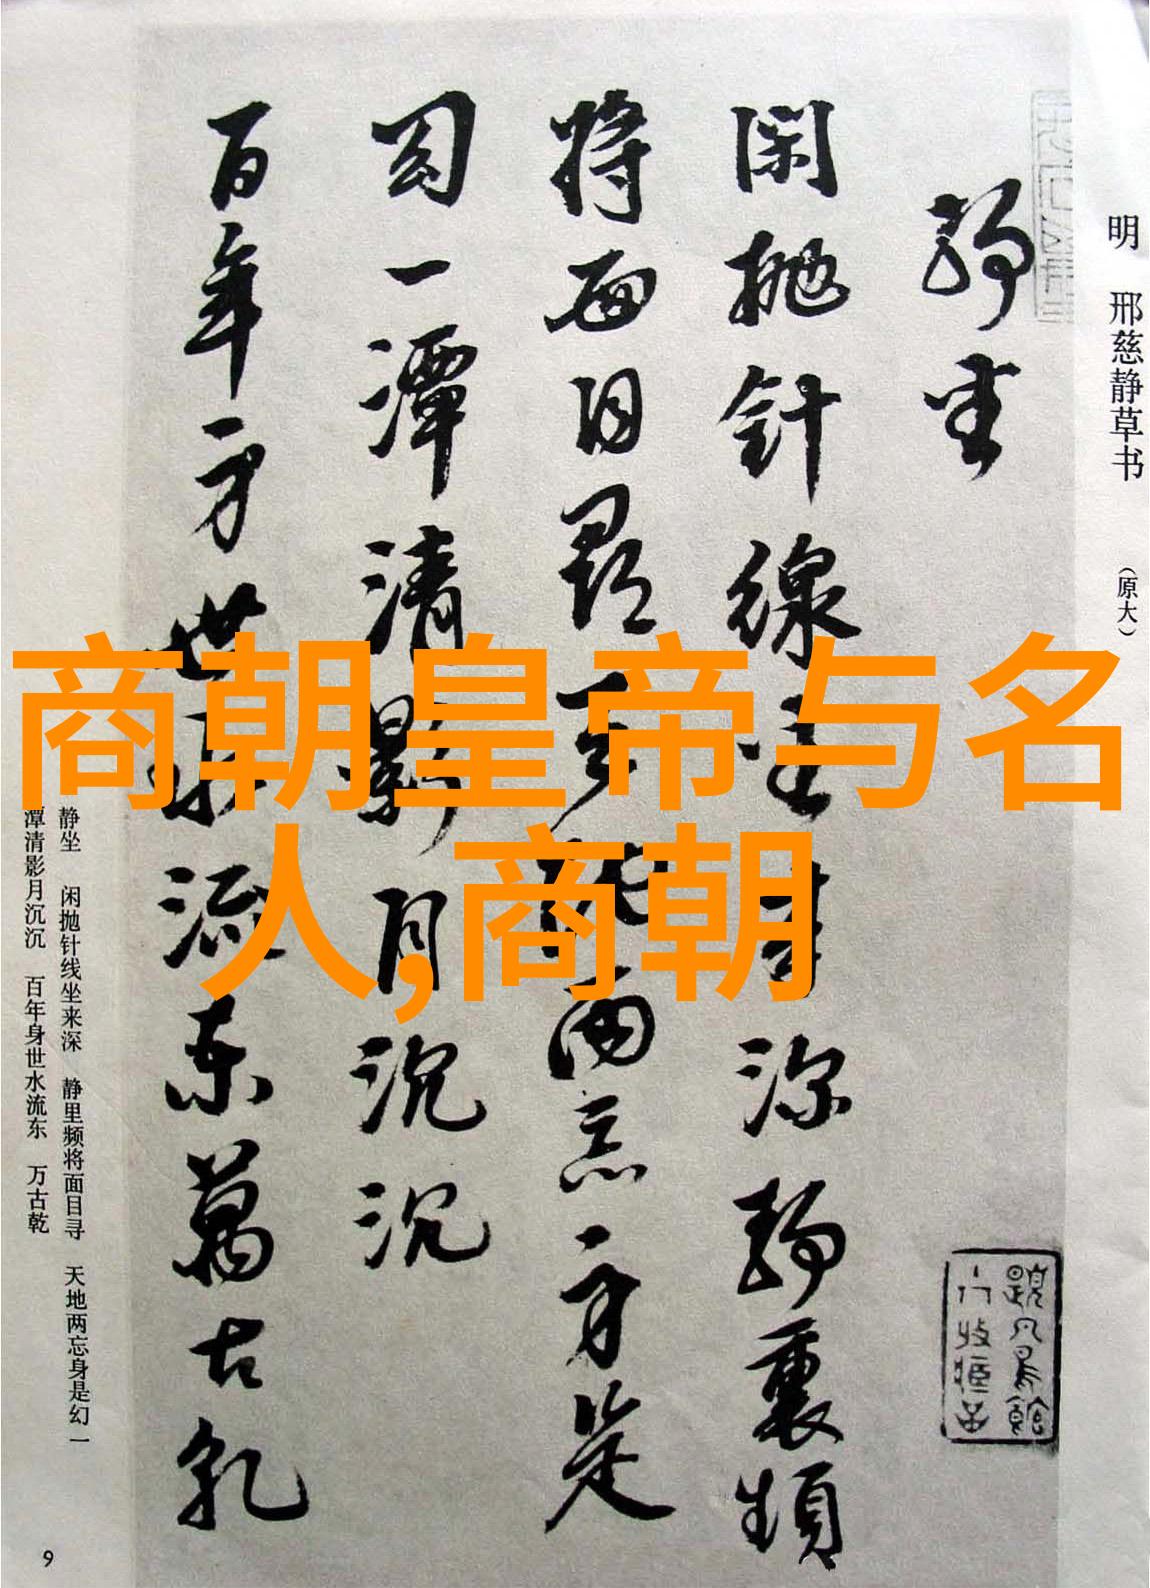 明 邢慈静草书 （原大）
静坐
闲抛针線坐来深静裏頻
将面目寻天地两忘身是
幻一潭清影月沉沉
百年身世水流东萬古乾
商朝皇帝与名
人,商朝
静坐 闲抛针线坐来深 静里频将面目寻 天地两忘身是幻 一
潭清影月沉沉 百年身世水流东 万古乾
9